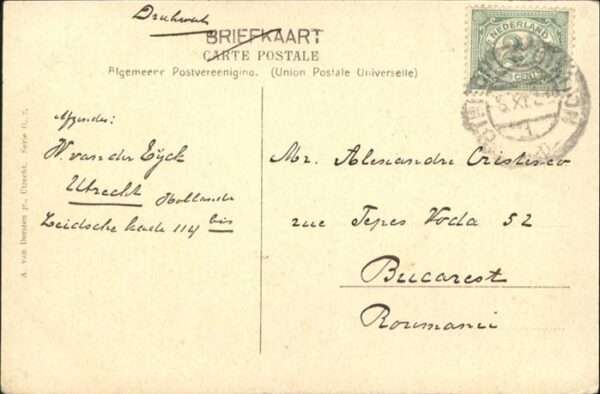 Drukwerk
BRIEFKAART
CARTE POSTALE
Algemeene Postvereeniging. (Union Postale Universelle)
NEDERLAND
2½
CENT
5 XI
Afzender:
W. van der Eyck
Utrecht Hollande
Leidsche kade 114 bis
Mr. Alexandre Cristesco
rue Tepes Voda 52
Bucarest
Roumanie
A. van Doesten Jr., Utrecht. Serie